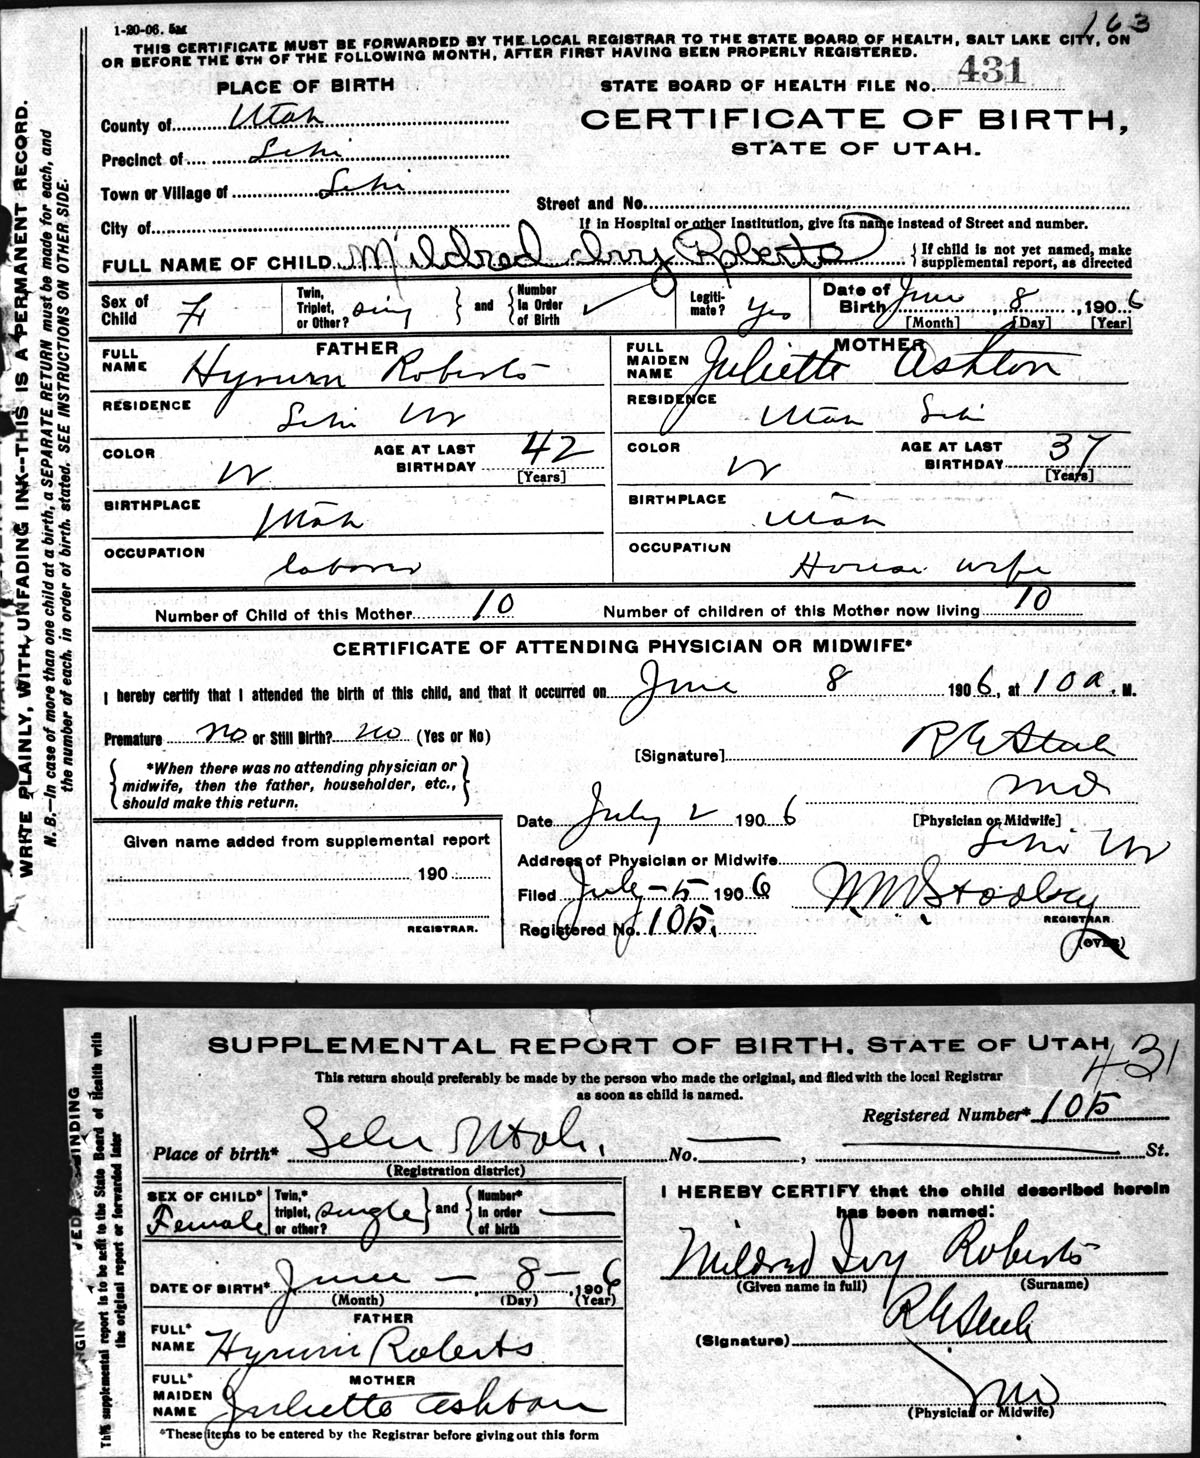 163
1-20-06. 5M
THIS CERTIFICATE MUST BE FORWARDED BY THE LOCAL REGISTRAR TO THE STATE BOARD OF HEALTH, SALT LAKE CITY, ON
OR BEFORE THE 5TH OF THE FOLLOWING MONTH, AFTER FIRST HAVING BEEN PROPERLY REGISTERED.
PLACE OF BIRTH
STATE BOARD OF HEALTH FILE No. 431
County of Utah
CERTIFICATE OF BIRTH,
STATE OF UTAH.
Precinct of Lehi
Town or Village of Lehi
Street and No.
City of
If in Hospital or other Institution, give its name instead of Street and number.
FULL NAME OF CHILD Mildred Ivy Roberts { If child is not yet named, make supplemental report, as directed
Sex of Child F Twin, Triplet, or Other? sing } and { Number in Order of Birth Legiti-mate? Yes Date of Birth June 8, 1906
[Month] [Day] [Year]
FATHER MOTHER
FULL NAME Hyrum Roberts FULL MAIDEN NAME Juliette Ashton
RESIDENCE Lehi Ut RESIDENCE Utah Lehi
COLOR W AGE AT LAST BIRTHDAY 42 [Years] COLOR W AGE AT LAST BIRTHDAY 37 [Years]
BIRTHPLACE Utah BIRTHPLACE Utah
OCCUPATION laborer OCCUPATION House wife
Number of Child of this Mother 10 Number of children of this Mother now living 10
CERTIFICATE OF ATTENDING PHYSICIAN OR MIDWIFE*
I hereby certify that I attended the birth of this child, and that it occurred on June 8 1906, at 10 a. M.
Premature no or Still Birth? no (Yes or No)
[Signature] R E Steele
{ *When there was no attending physician or midwife, then the father, householder, etc., should make this return. }
MD
Date July 2 1906 [Physician or Midwife]
Address of Physician or Midwife Lehi Ut
Given name added from supplemental report
190
REGISTRAR.
Filed July-5 1906
REGISTRAR.
Registered No. 105.
(OVER)
WRITE PLAINLY, WITH UNFADING INK--THIS IS A PERMANENT RECORD.
N. B.—In case of more than one child at a birth, a SEPARATE RETURN must be made for each, and
the number of each, in order of birth, stated. SEE INSTRUCTIONS ON OTHER SIDE.
SUPPLEMENTAL REPORT OF BIRTH, STATE OF UTAH
431
This return should preferably be made by the person who made the original, and filed with the local Registrar
as soon as child is named.
Registered Number* 105
Place of birth* Lehi Utah. No. , St.
(Registration district)
SEX OF CHILD* Female Twin,* triplet, or other? single } and { Number* in order of birth
I HEREBY CERTIFY that the child described herein
has been named:
Mildred Ivy Roberts
(Given name in full) (Surname)
DATE OF BIRTH* June — 8 — , 1906
(Month) (Day) (Year)
FATHER
FULL* NAME Hyrum Roberts
(Signature) R E Steele
MD
(Physician or Midwife)
MOTHER
FULL* MAIDEN NAME Juliette Ashton
*These items to be entered by the Registrar before giving out this form
This supplemental report is to be sent to the State Board of Health with
the original report or forwarded later